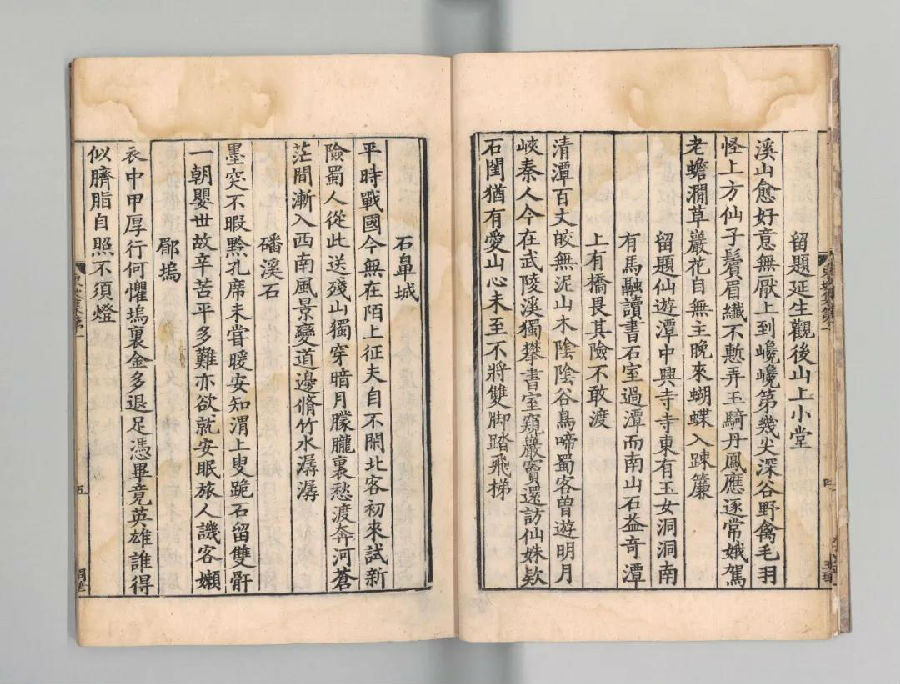 留題延生觀後山上小堂
溪山愈好意無厭上到巉巉第幾尖深谷野禽毛羽
怪上方仙子鬢眉纖不慙弄玉騎丹鳳應逐常娥駕
老蟾澗草巖花自無主晚來蝴蝶入踈簾
留題仙遊潭中興寺寺東有玉女洞洞南
有馬融讀書石室過潭而南山石益奇潭
上有橋畏其險不敢渡
清潭百丈皎無泥山木陰陰谷鳥啼蜀客曽遊明月
峽秦人今在武陵溪獨攀書室窺巖竇還訪仙姝款
石閨猶有愛山心未至不將雙脚踏飛梯
石鼻城
平時戰國今無在陌上征夫自不閑北客初來試新
險蜀人從此送殘山獨穿暗月朦朧裏愁渡奔河蒼
茫間漸入西南風景變道邊脩竹水潺潺
磻溪石
墨突不暇黔孔席未嘗暖安知渭上叟跪石留雙骭
一朝嬰世故辛苦平多難亦欲就安眠旅人譏客嬾
郿塢
衣中甲厚行何懼塢裏金多退足憑畢竟英雄誰得
似臍脂自照不須燈
五